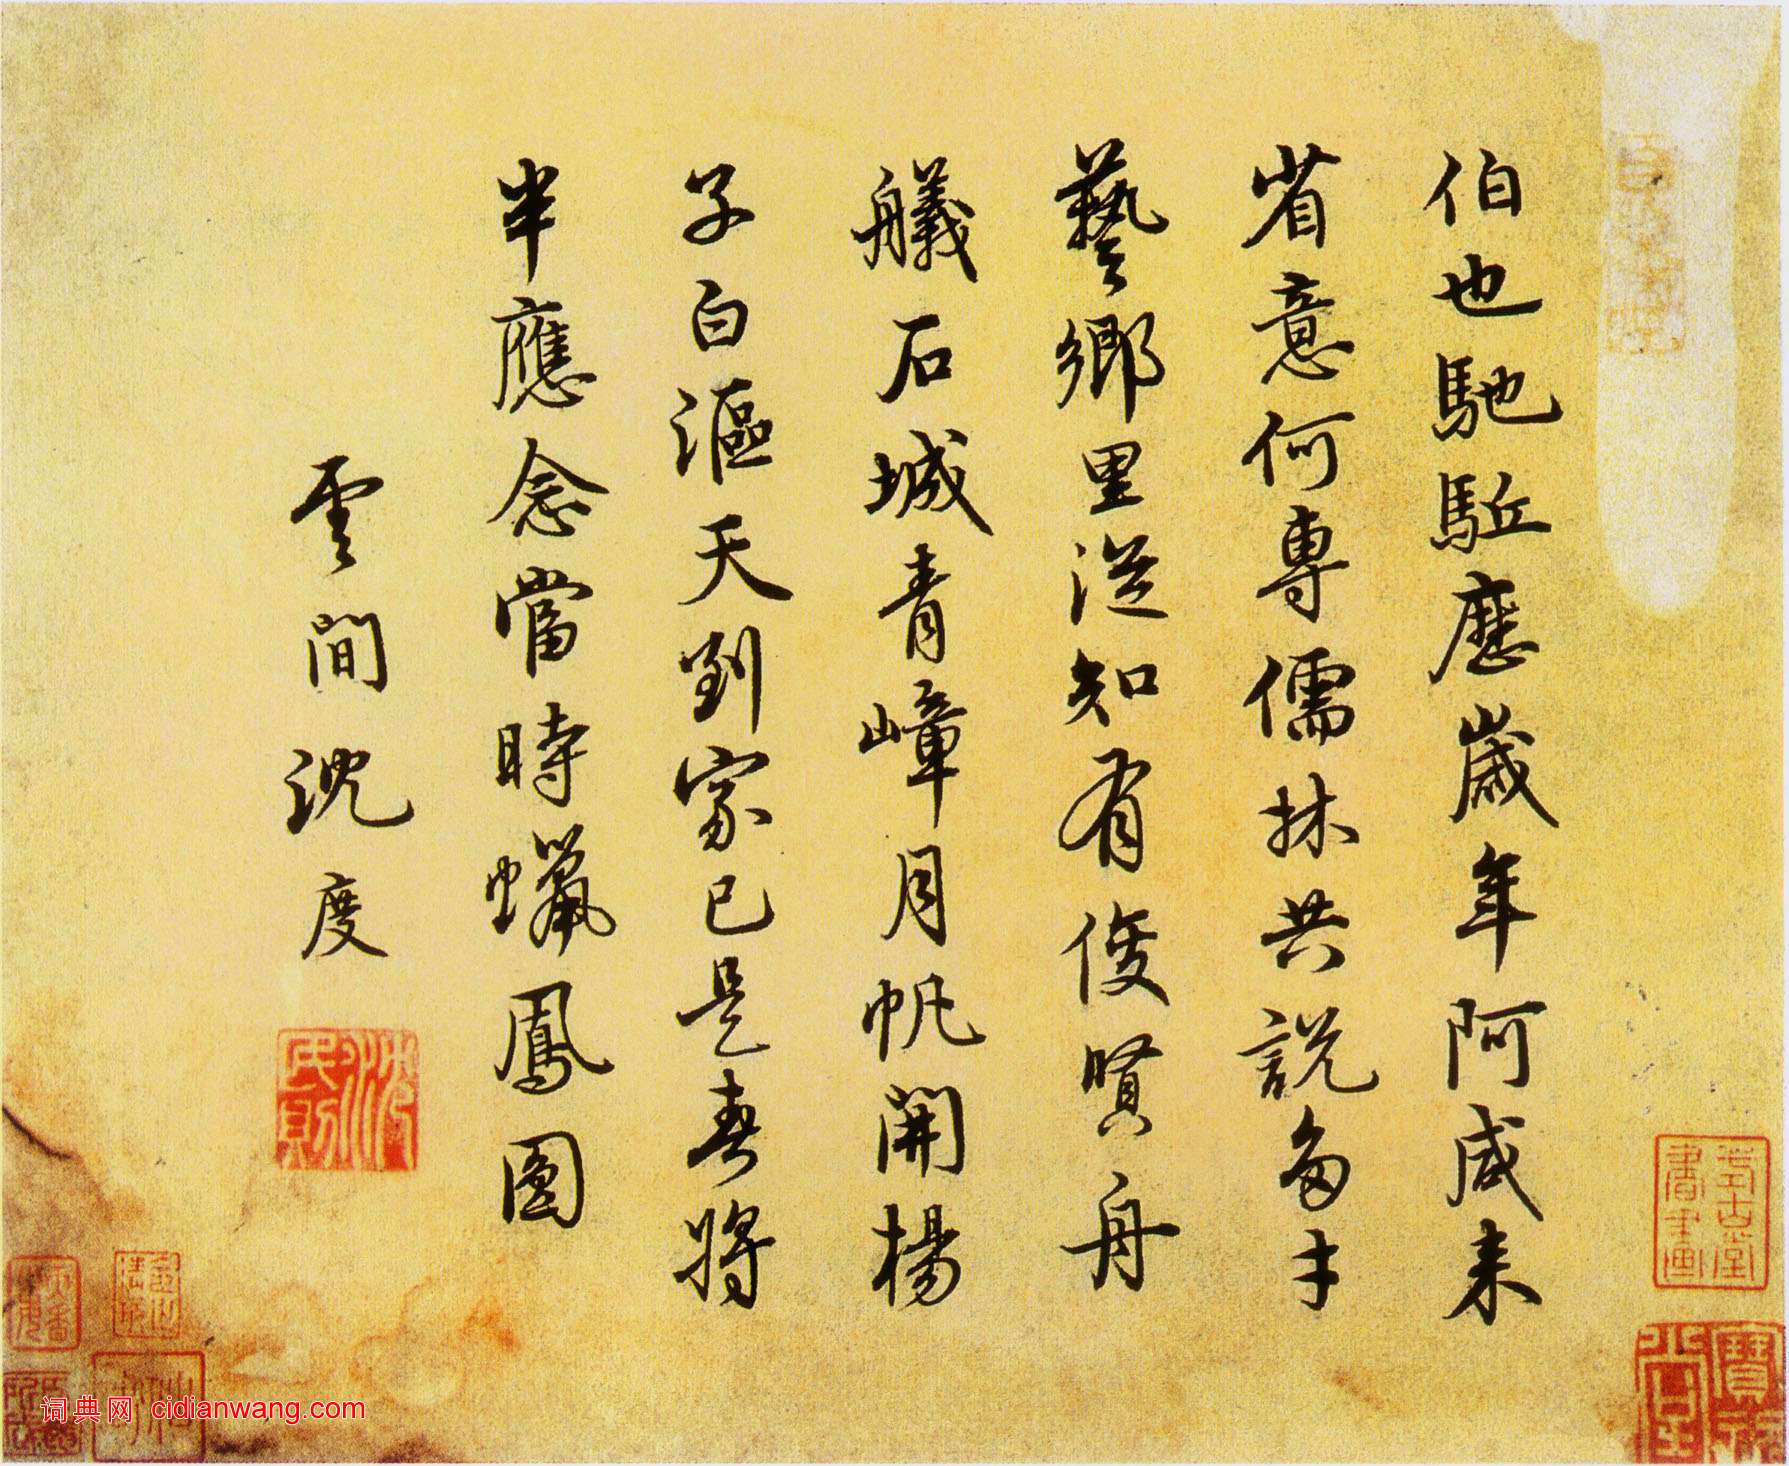 伯也馳駈歷歲年阿咸来
省意何專儒林共說多才
藝鄉里從知有俊賢舟
艤石城青嶂月帆開楊
子白漚天到家已是春將
半應念當時蠟鳳圓
雲間沈度
沈民則
書畫
词典网 cidianwang.com